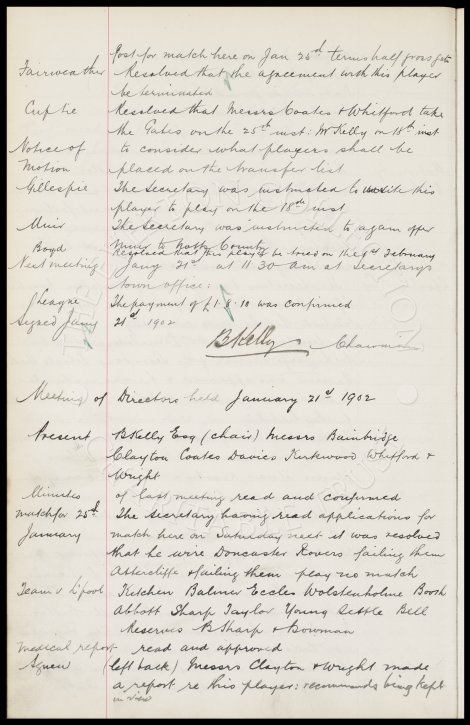 Post for match here on Jan 25th terms half gross gate
Fairweather Resolved that the agreement with this player
be terminated
Cup tie Resolved that Messrs Coates & Whitford take
the Gates on the 25th inst. Mr Kelly on 18th inst
Notice of Motion to consider what players shall be
placed on the transfer list
Gillespie The Secretary was instructed to write this
player to play on the 18th inst
Muir The Secretary was instructed to again offer
Muir to Notts County
Boyd Resolved that this player be tried on the 1st February
Next meeting Jany 21st at 11.30 am at Secretarys
town office:
League The payment of £1.8.10 was confirmed
Signed Jany 21st 1902
B Kelly Chairman
Meeting of Directors held January 21st 1902
Present B Kelly Esq (chair) Messrs Bainbridge
Clayton Coates Davies Kirkwood Whitford &
Wright
Minutes of last meeting read and confirmed
Match for 25th January The Secretary having read applications for
match here on Saturday next it was resolved
that he wire Doncaster Rovers failing them
Attercliffe & failing them play no match
Team v L'pool Kitchen Balmer Eccles Wolstenholme Booth
Abbott Sharp Taylor Young Settle Bell
Reserves B Sharp & Bowman
Medical report read and approved
Agnew (left back) Messrs Clayton & Wright made
a report re this player: recommends being kept
in view